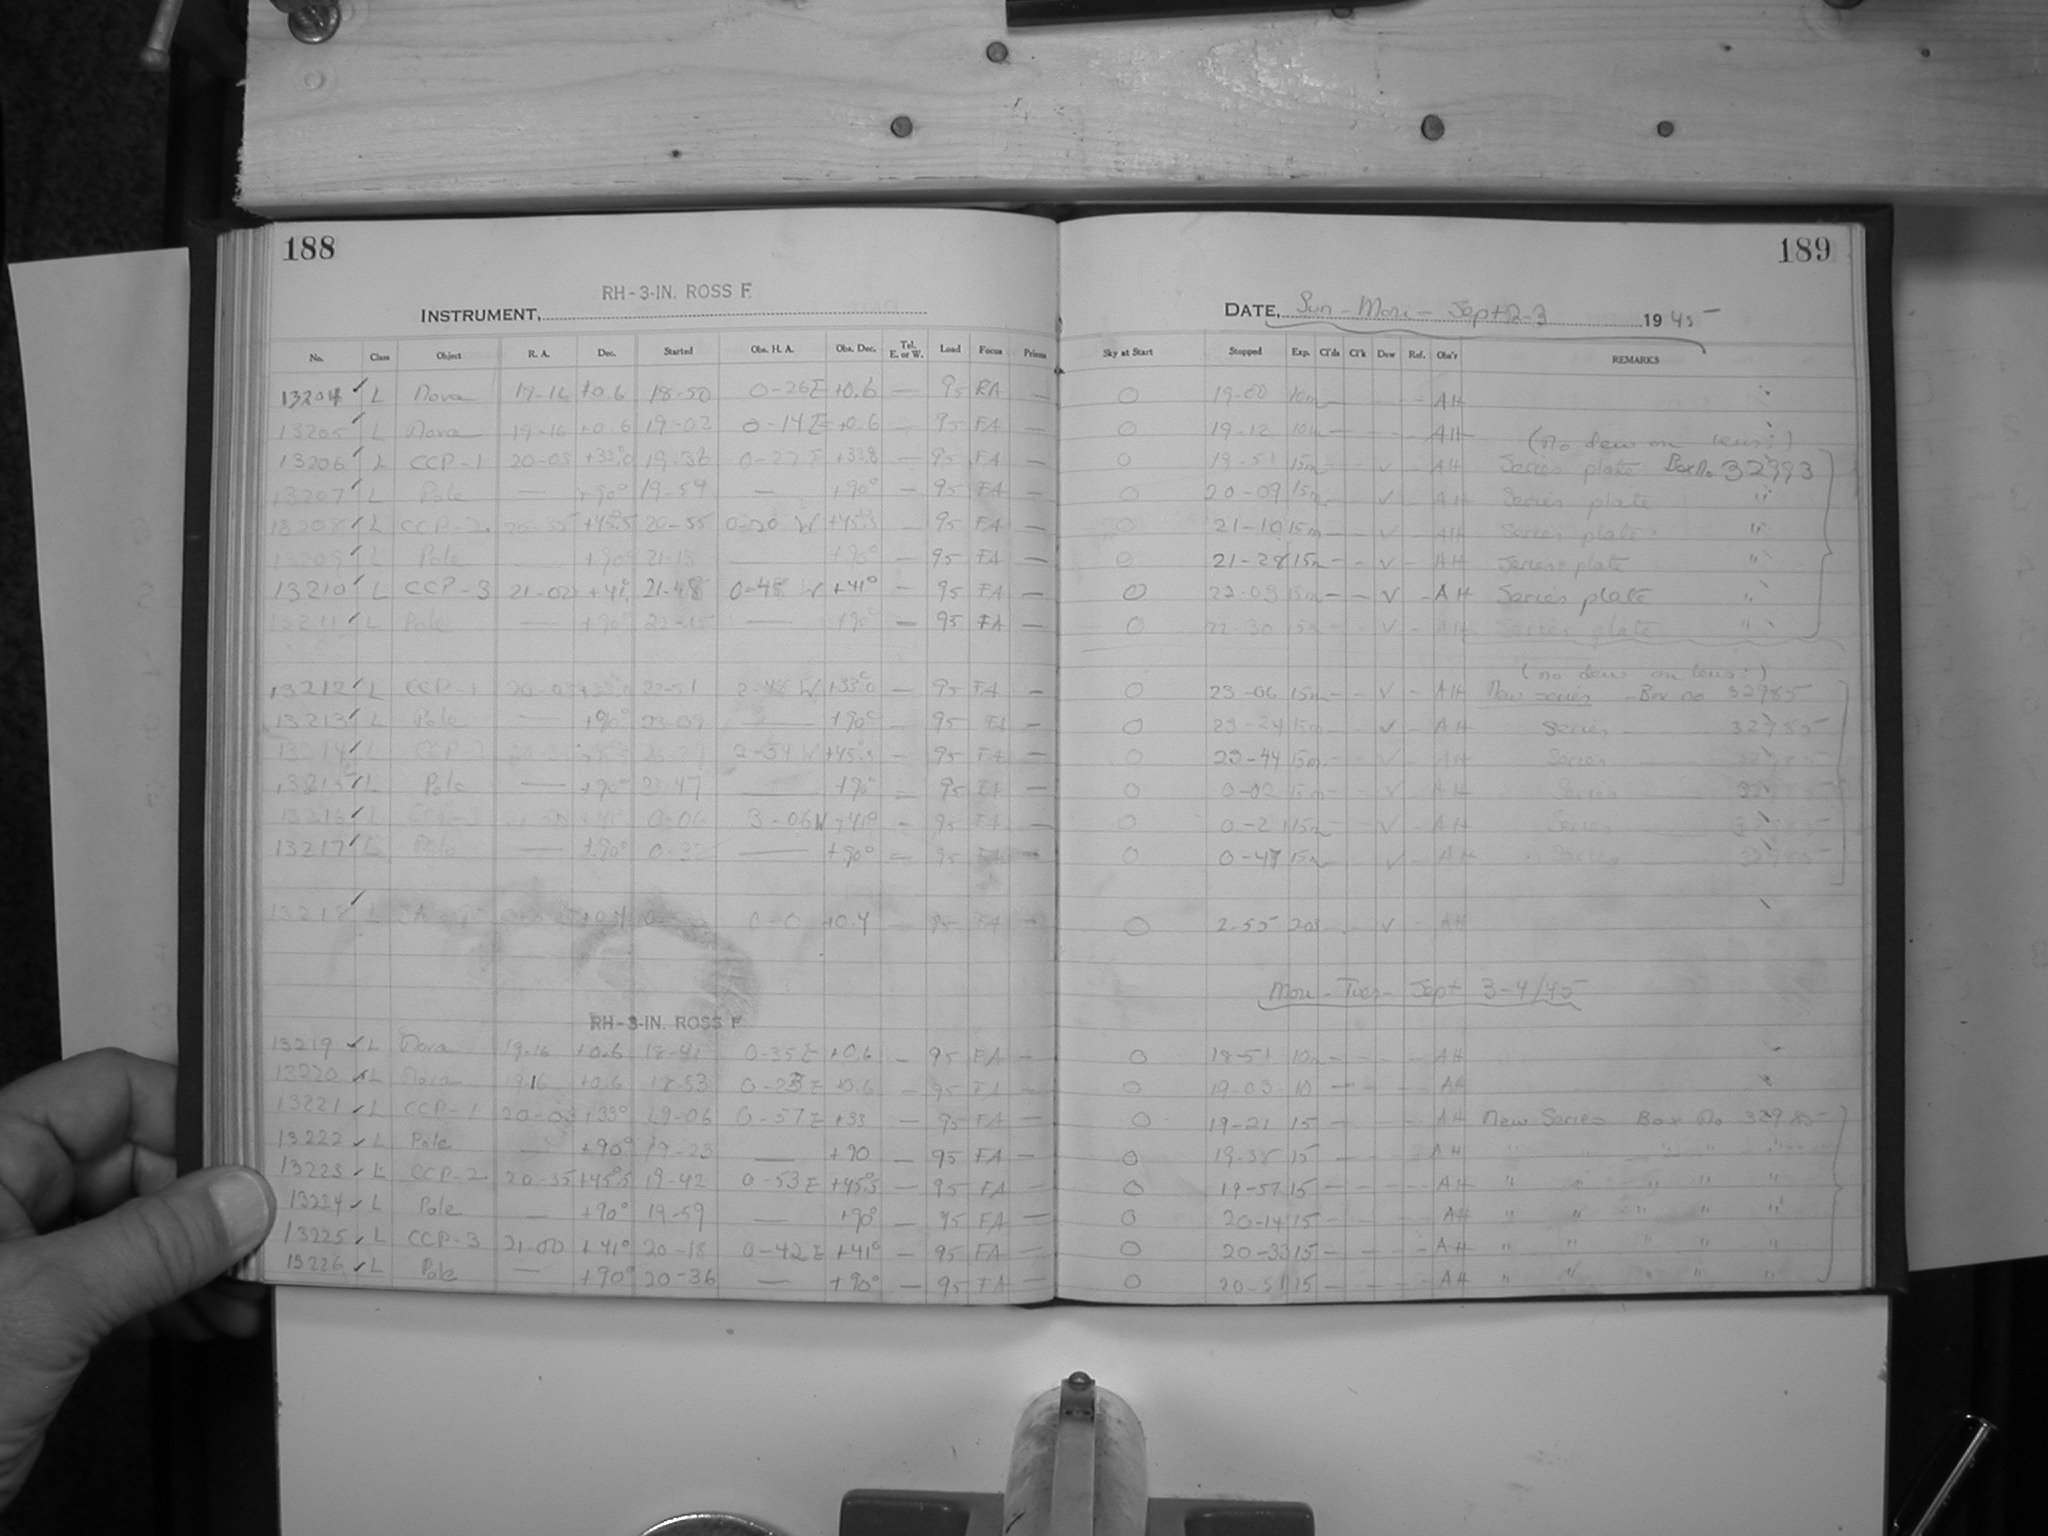 188
RH-3-IN. ROSS F.
INSTRUMENT,
No. Class Object R. A. Dec. Started Obs. H. A. Obs. Dec. Tel. E. or W. Load Focus Prisms
13204 L Nova 19-16 +0.6 18-50 0-26E +0.6 — 95 —
13205 L Nova 19-16 +0.6 19-02 0-14E +0.6 — 95 FA —
13206 L CCP-1 20-03 19-36 0-27E — 95 FA —
13207 L Pole — +90° 19-54 — +90° — 95 FA —
13208 L CCP-2 20-35 +45.5 20-55 0-20 W +45.5 — 95 FA —
13209 L Pole — +90° 21-13 — +90° — 95 FA —
13210 L CCP-3 21-00 +41° 21-48 0-48 W +41° — 95 FA —
13211 L Pole — +90° 22-15 — +90° — 95 FA —
13212 L CCP-1 20-03 22-51 2-48 W — 95 FA —
13213 L Pole — +90° 23-09 — +90° — 95 FA —
13214 L CCP-2 23-29 2-54 W +45.5 — 95 FA —
13215 L Pole — +90° 23-47 — +90° — 95 FA —
13216 L CCP-3 +41° 0-06 3-06W +41° — 95 FA —
13217 L Pole — +90° 0-32 — +90° — 95 FA —
13218 L 0-0 — 95 FA —
RH-3-IN. ROSS F.
13219 L Nova 19-16 +0.6 18-41 0-35E +0.6 — 95 FA —
13220 L Nova 19 16 +0.6 18-53 +0.6 — 95 FA —
13221 L CCP-1 20-03 +33° 19-06 0-57E +33 — 95 FA —
13222 L Pole — +90° 19-23 — +90 — 95 FA —
13223 L CCP-2 20-35 +45.5 19-42 0-53E +45.5 — 95 FA —
13224 L Pole — +90° 19-59 — +90° — 95 FA —
13225 L CCP-3 21-00 +41° 20-18 0-42E +41° — 95 FA —
13226 L Pole — +90° 20-36 — +90° — 95 FA —
189
DATE, Sun - Mon - Sept 2-3 1945
Sky at Start Stopped Exp. Cl'ds Cl'k Dew Ref. Obs'r REMARKS
O 19-00 10m AH
O 19-12 10m AH (no dew on lens!)
O 19-51 15m v AH Series plate Box No 32993
O 20-09 15m v AH Series plate "
O 21-10 15m v AH Series plate "
O 21-28 15m v AH Series plate "
O 22-03 15m v AH Series plate "
O 22-30 15m v AH Series plate "
(no dew on lens!)
O 23-06 15m v AH New series - Box no 32985
O 23-24 15m v AH Series 32985
O 23-44 15m v AH Series 32985
O 0-02 15m v AH Series 32985
O 0-21 15m v AH Series 32985
O 0-47 15m v AH Series 32985
O 2-55 v AH
Mon - Tues - Sept 3-4/45
O 18-51 10m AH
O 19-03 10 AH
O 19-21 15 AH New Series Box No 32985
O 19-38 15 AH " " " " "
O 19-57 15 AH " " " " "
O 20-14 15 AH " " " " "
O 20-33 15 AH " " " " "
O 20-51 15 AH " " " " "